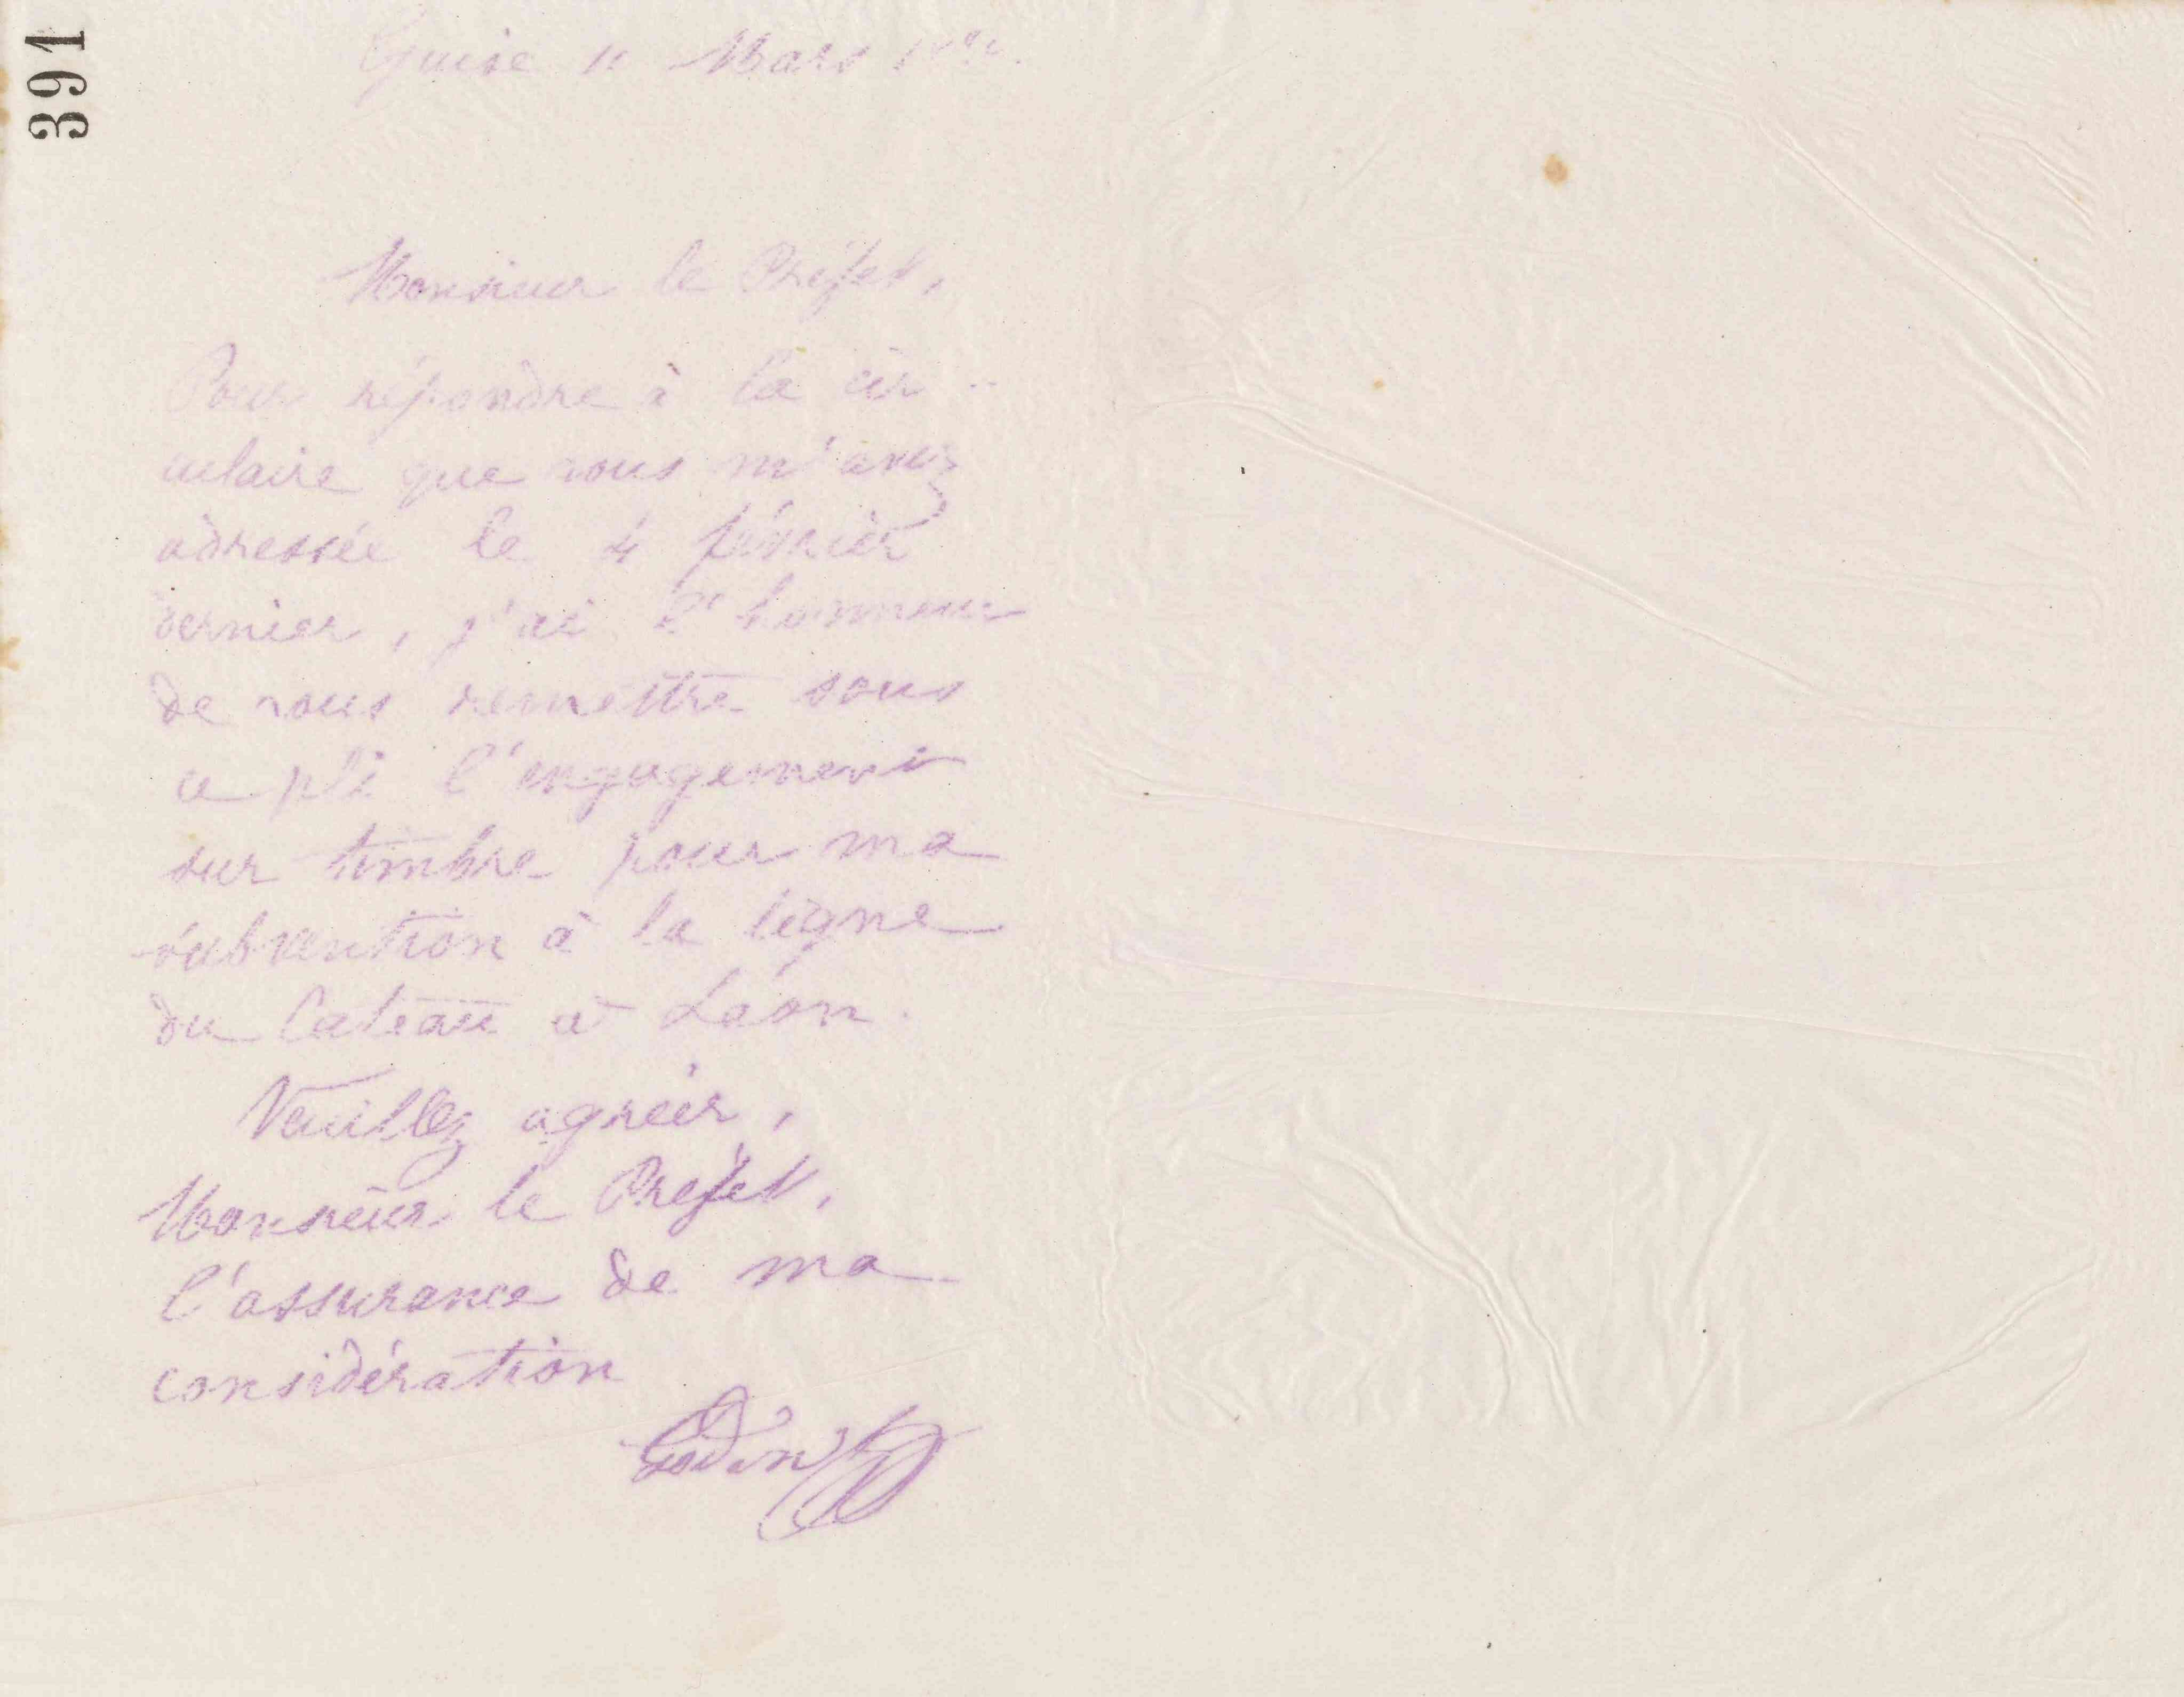 391
Guise 11 Mars
Monsieur le Préfet,
Pour répondre à la cir
culaire que vous m'avez
adressée le 4 février
dernier, j'ai l'honneur
de vous remettre sous
ce pli l'engagement
sur timbre pour ma
subvention à la ligne
du Cateau à Laon.
Veuillez agréer,
Monsieur le Préfet,
l'assurance de ma
considération
Godin